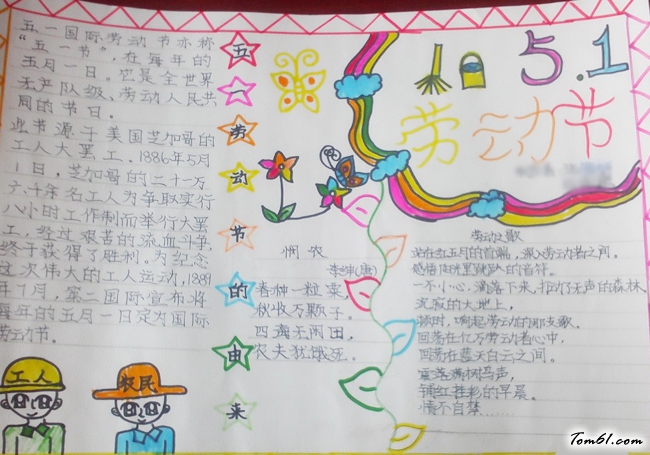 五一国际劳动节亦称
“五一节”，在每年的
五月一日。它是全世界
无产队级、劳动人民共
同的节日。
此节源于美国芝加哥的
工人大罢工。1886年5月
1日，芝加哥的二十一万
六千余名工人为争取实行
八小时工作制而举行大罢
工，经过艰苦的流血斗争，
终于获得了胜利。为纪念
这次伟大的工人运动，1889
年7月，第二国际宣布将
每年的五月一日定为国际
劳动节。
工人
农民
五一劳动节的由来
5.1
劳动节
悯农
李绅(唐)
春种一粒粟，
秋收万颗子。
四海无闲田，
农夫犹饿死。
劳动之歌
站在红五月的首端，深入劳动者之间。
一不小心，滴落下来，打动了无声的森林、
沉寂的大地上，
顿时，响起劳动的那支歌。
回荡在亿万劳动者心中，
回荡在蓝天白云之间。
铺红挂彩的早晨。
情不自禁……
Tom61.com